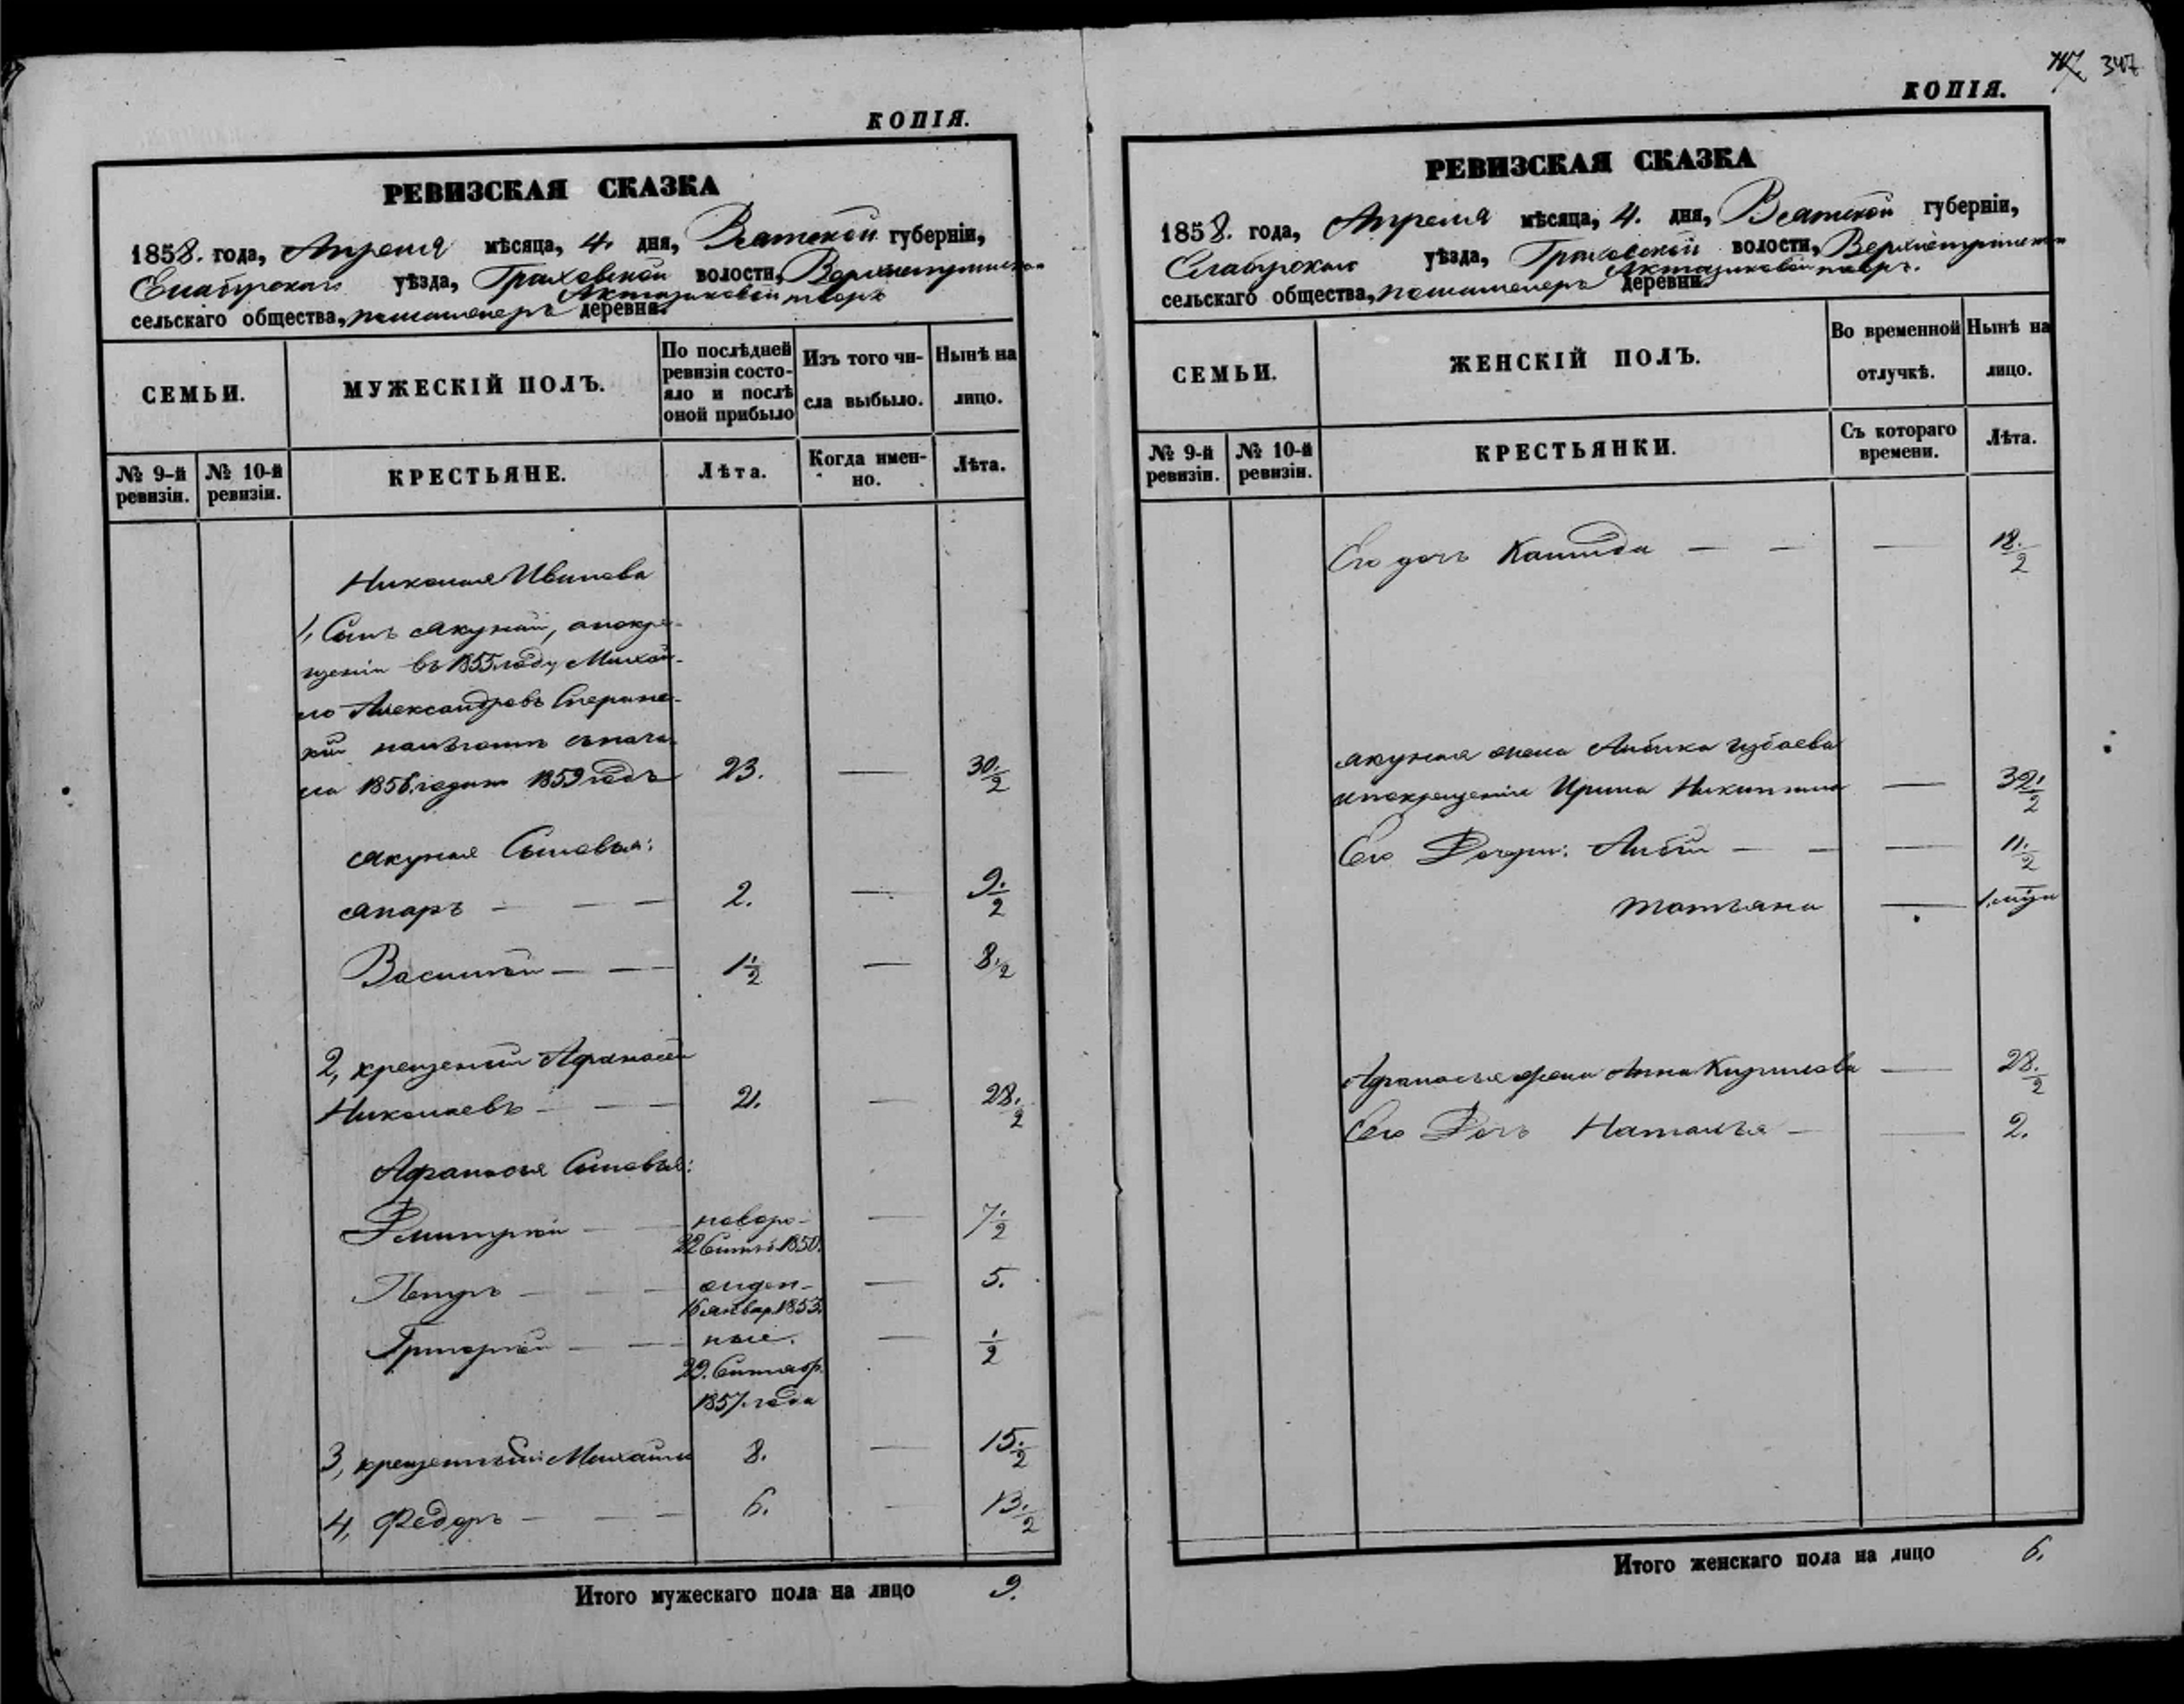 КОПІЯ.
РЕВИЗСКАЯ СКАЗКА
1858. года, Апреля мѣсяца, 4. дня, Вятской губерніи,
Елабугскаго уѣзда, Граховской волости,
сельскаго общества, деревни.
СЕМЬИ.
МУЖЕСКІЙ ПОЛЪ.
По послѣдней
ревизіи состо-
яло и послѣ
оной прибыло
Изъ того чи-
сла выбыло.
Нынѣ на
лицо.
№ 9-й
ревизіи.
№ 10-й
ревизіи.
КРЕСТЬЯНЕ.
Лѣта.
Когда имен-
но.
Лѣта.
Николая Иванова
1, Сынъ Якупай, апокре-
щеніи въ 1855 году Михай-
ло Александровъ Сперанс-
кій
ла 1856 года по 1859 годъ 23. — 30 1/2
Якупая Сыновья:
Япаръ — — — 2. — 9. 1/2
Василей — — — 1 1/2 — 8. 1/2
2, крещеный Афанасей
Николаевъ — — 21. — 28. 1/2
Афанасья Сыновья:
Дмитрей — — новоро- — 7 1/2
22 Сентъ 1850.
Петръ — — — ожден- — 5.
16 январ. 1853.
Григорей — — — ные. — 1/2
29. Сентябр.
1857. года
3, крещенный Михайло 8. — 15. 1/2
4, Федоръ — — — 6. — 13. 1/2
Итого мужескаго пола на лицо 9.
347
КОПІЯ.
РЕВИЗСКАЯ СКАЗКА
1858. года, Апреля мѣсяца, 4. дня, Вятской губерніи,
Елабугскаго уѣзда, Граховской волости,
сельскаго общества, деревни.
СЕМЬИ.
ЖЕНСКІЙ ПОЛЪ.
Во временной
отлучкѣ.
Нынѣ на
лицо.
№ 9-й
ревизіи.
№ 10-й
ревизіи.
КРЕСТЬЯНКИ.
Съ котораго
времени.
Лѣта.
Его дочь — — — 18. 1/2
Якупая жена
апокрещеніи Ирина Никитина — 32. 1/2
Его Дочери: — — — 11. 1/2
Татьяна —
Афанасья жена Анна Кирилова — 28. 1/2
Его Дочь Наталья — — 2.
Итого женскаго пола на лицо 6.